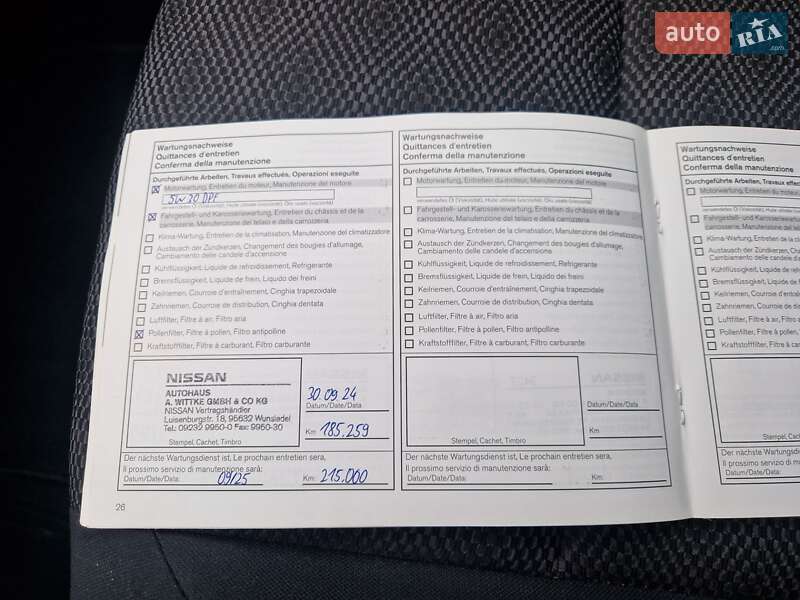 auto RIA .com
Wartungsnachweise
Quittances d'entretien
Conferma della manutenzione
Durchgeführte Arbeiten, Travaux effectués, Operazioni eseguite
Motorwartung, Entretien du moteur, Manutenzione del motore
5W30 DPF
verwendetes Öl (Viskosität), Huile utilisée (viscosité), Olio usato (viscosità)
Fahrgestell- und Karosseriewartung, Entretien du châssis et de la
carrosserie, Manutenzione del telaio e della carrozzeria
Klima-Wartung, Entretien de la climatisation, Manutenzione del climatizzatore
Austausch der Zündkerzen, Changement des bougies d'allumage,
Cambiamento delle candele d'accensione
Kühlflüssigkeit, Liquide de refroidissement, Refrigerante
Bremsflüssigkeit, Liquide de frein, Liquido dei freini
Keilriemen, Courroie d'entraînement, Cinghia trapezoidale
Zahnriemen, Courroie de distribution, Cinghia dentata
Luftfilter, Filtre à air, Filtro aria
Pollenfilter, Filtre à pollen, Filtro antipolline
Kraftstofffilter, Filtre à carburant, Filtro carburante
NISSAN
AUTOHAUS
A. WITTKE GMBH & CO KG
NISSAN Vertragshändler
Luisenburgstr. 18, 95632 Wunsiedel
Tel.: 09232 9950-0 Fax: 9950-30
Stempel, Cachet, Timbro
30.09.24
Datum/Date/Data
Km 185.259
Der nächste Wartungsdienst ist, Le prochain entretien sera,
Il prossimo servizio di manutenzione sarà:
Datum/Date/Data: 09/25 Km: 215.000
26
Wartungsnachweise
Quittances d'entretien
Conferma della manutenzione
Durchgeführte Arbeiten, Travaux effectués, Operazioni eseguite
Motorwartung, Entretien du moteur, Manutenzione del motore
verwendetes Öl (Viskosität), Huile utilisée (viscosité), Olio usato (viscosità)
Fahrgestell- und Karosseriewartung, Entretien du châssis et de la
carrosserie, Manutenzione del telaio e della carrozzeria
Klima-Wartung, Entretien de la climatisation, Manutenzione del climatizzatore
Austausch der Zündkerzen, Changement des bougies d'allumage,
Cambiamento delle candele d'accensione
Kühlflüssigkeit, Liquide de refroidissement, Refrigerante
Bremsflüssigkeit, Liquide de frein, Liquido dei freini
Keilriemen, Courroie d'entraînement, Cinghia trapezoidale
Zahnriemen, Courroie de distribution, Cinghia dentata
Luftfilter, Filtre à air, Filtro aria
Pollenfilter, Filtre à pollen, Filtro antipolline
Kraftstofffilter, Filtre à carburant, Filtro carburante
Stempel, Cachet, Timbro
Datum/Date/Data
Km
Der nächste Wartungsdienst ist, Le prochain entretien sera,
Il prossimo servizio di manutenzione sarà:
Datum/Date/Data: Km:
Wartungsnachweise
Quittances d'entretien
Conferma della manutenzione
Durchgeführte Arbeiten, Travaux effectués
Motorwartung, Entretien du moteur
verwendetes Öl (Viskosität), Huile utilisée
Fahrgestell- und Karosseriewartung
carrosserie, Manutenzione del telaio
Klima-Wartung, Entretien de la
Austausch der Zündkerzen
Cambiamento delle candele
Kühlflüssigkeit, Liquide de
Bremsflüssigkeit, Liquide
Keilriemen, Courroie
Zahnriemen, Courroie
Luftfilter, Filtre à air
Pollenfilter, Filtre à
Kraftstofffilter, Filtre
Stempel, Cachet
Der nächste Wartungsdienst
Il prossimo servizio di
Datum/Date/Data: